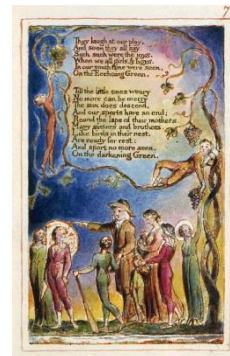 7
They laugh at our play,
And soon they all say,
Such such were the joys.
When we all girls & boys,
In our youth-time were seen,
On the Ecchoing Green.
Till the little ones weary
No more can be merry
The sun does descend,
And our sports have an end:
Round the laps of their mothers,
Many sisters and brothers,
Like birds in their nest,
Are ready for rest:
And sport no more seen,
On the darkening Green.